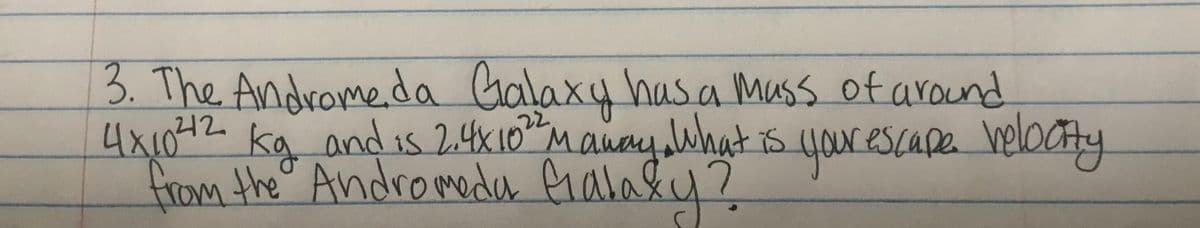 3. The Andromeda Galaxy has a Mass of around
4x10^42 kg and is 2.4x10^22 M away. What is your escape velocity
from the Andromeda Galaxy?